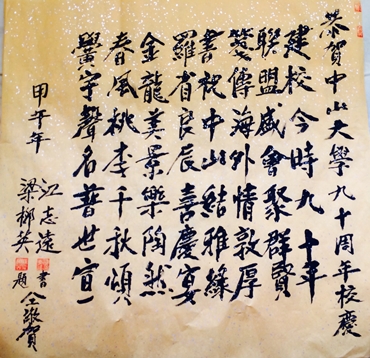 恭賀中山大學九十周年校慶
建校今時九十年
聯盟盛會聚群賢
箋傳海外情敦厚
書祝中山結雅緣
羅省良辰喜慶宴
金龍美景樂陶然
春風桃李千秋頌
黌宇聲名普世宣
甲午年
江志遠 書
梁柳英 題
仝敬賀